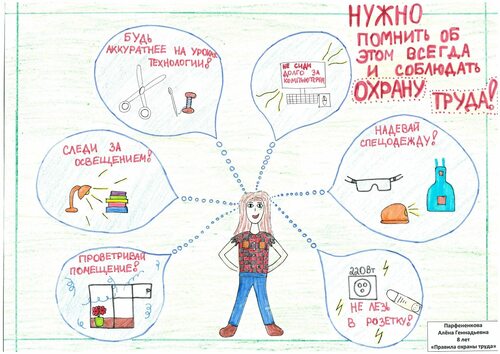 НУЖНО
ПОМНИТЬ ОБ
ЭТОМ ВСЕГДА
И СОБЛЮДАТЬ
ОХРАНУ
ТРУДА!
БУДЬ
АККУРАТНЕЕ НА УРОКАХ
ТЕХНОЛОГИИ!
НЕ СИДИ
ДОЛГО ЗА
КОМПЬЮТЕРОМ
СЛЕДИ ЗА
ОСВЕЩЕНИЕМ!
НАДЕВАЙ
СПЕЦОДЕЖДУ!
ПРОВЕТРИВАЙ
ПОМЕЩЕНИЕ!
220Вт
НЕ ЛЕЗЬ
В РОЗЕТКУ!
Парфененкова
Алёна Геннадьевна
8 лет
«Правила охраны труда»